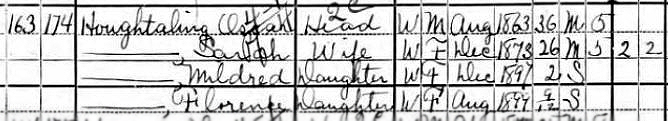 163 174 Houghtaling Oscar Head W M Aug 1863 36 M 5
Sarah Wife W F Dec 1873 26 M 5 2 2
Mildred Daughter W F Dec 1897 2 S
Florence Daughter W F Aug 1899 9/12 S